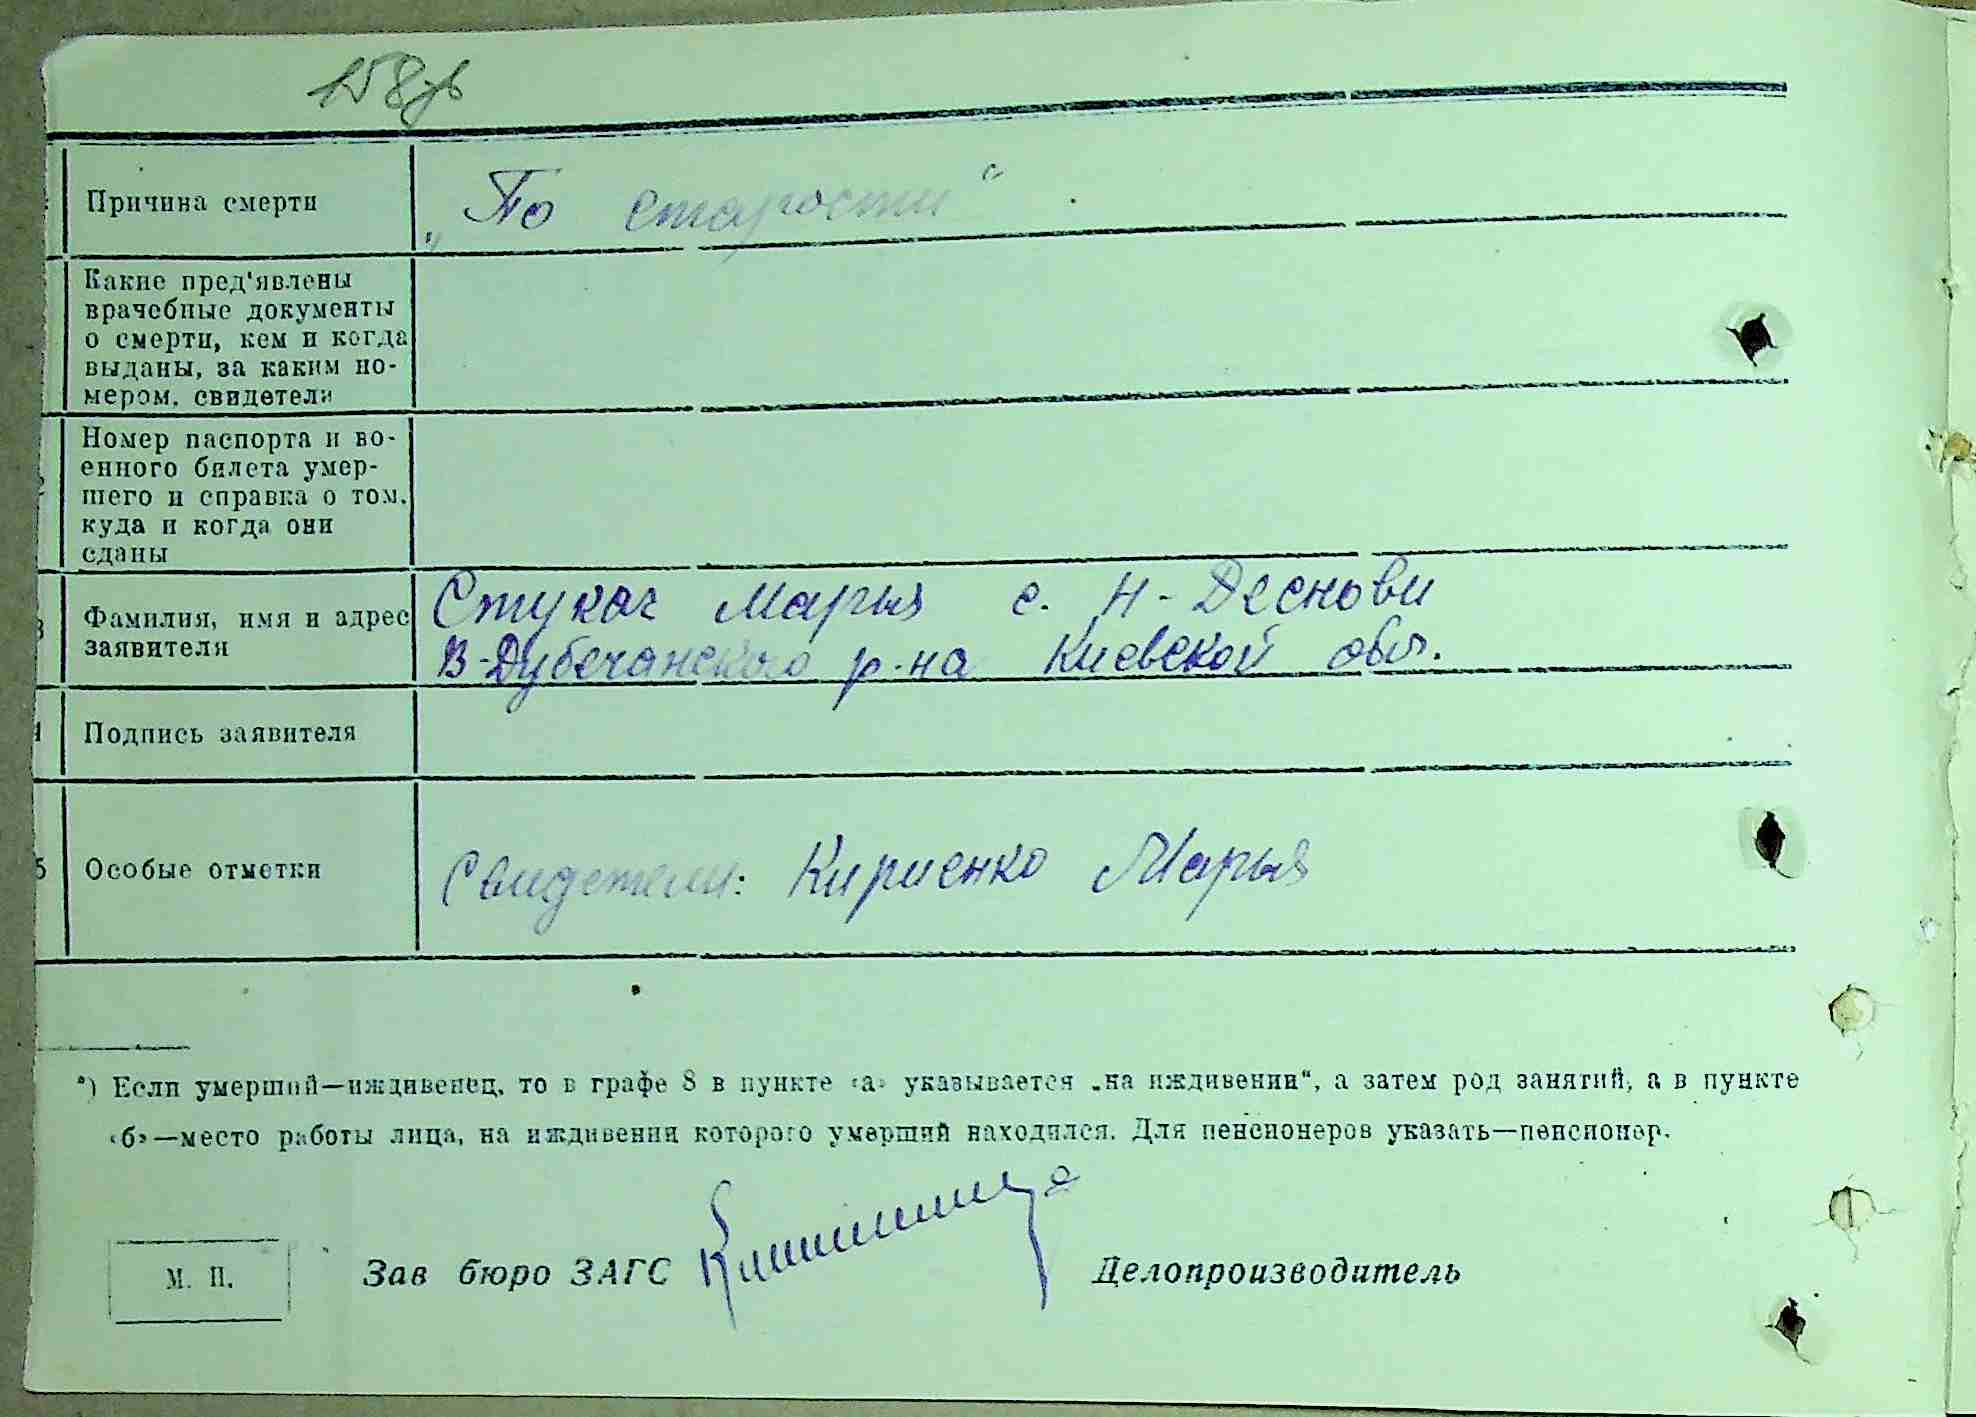 158
Причина смерти
„По старости“
Какие пред'явлены
врачебные документы
о смерти, кем и когда
выданы, за каким но-
мером, свидетели
Номер паспорта и во-
енного билета умер-
шего и справка о том,
куда и когда они
сданы
Фамилия, имя и адрес
заявителя
Стукач Марья с. Н-Десновы
В-Дубечанского р-на Киевской обл.
Подпись заявителя
5
Особые отметки
Свидетели: Кириенко Марья
*) Если умерший—иждивенец, то в графе 8 в пункте «а» указывается „на иждивении“, а затем род занятий, а в пункте
«б»—место работы лица, на иждивении которого умерший находился. Для пенсионеров указать—пенсионер.
М. П.
Зав бюро ЗАГС
Делопроизводитель